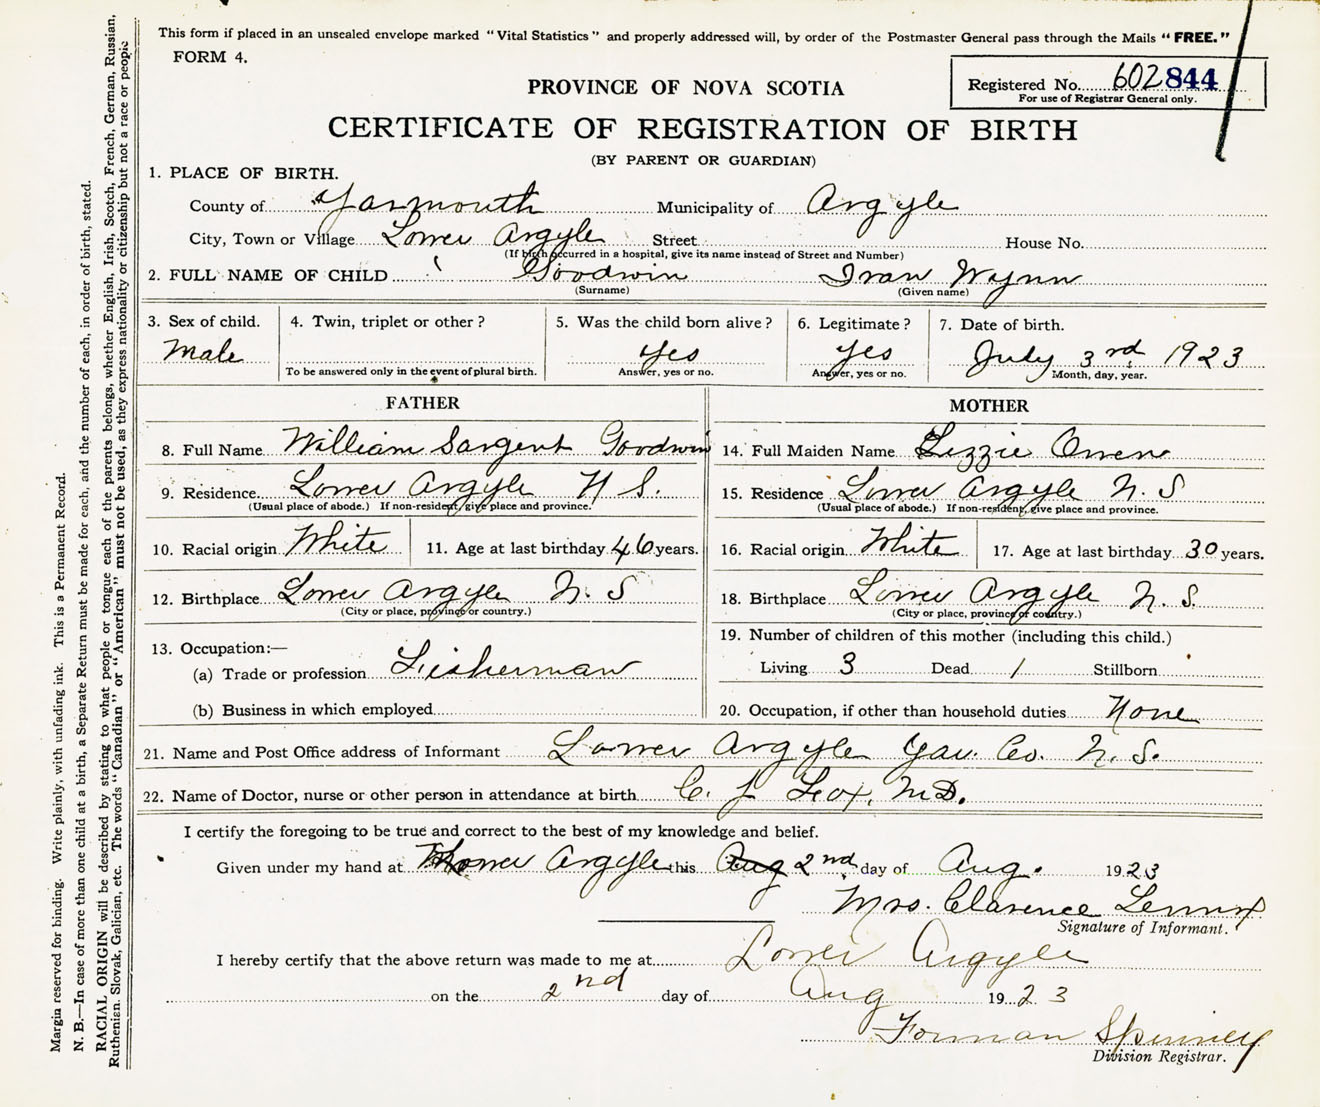 This form if placed in an unsealed envelope marked "Vital Statistics" and properly addressed will, by order of the Postmaster General pass through the Mails "FREE."
FORM 4.
Registered No. 602844
For use of Registrar General only.
PROVINCE OF NOVA SCOTIA
CERTIFICATE OF REGISTRATION OF BIRTH
(BY PARENT OR GUARDIAN)
1. PLACE OF BIRTH.
County of Yarmouth Municipality of Argyle
City, Town or Village Lower Argyle Street House No.
(If birth occurred in a hospital, give its name instead of Street and Number)
2. FULL NAME OF CHILD Goodwin Ivan Wynn
(Surname) (Given name)
3. Sex of child. 4. Twin, triplet or other? 5. Was the child born alive? 6. Legitimate? 7. Date of birth.
Male Yes Yes July 3rd 1923
To be answered only in the event of plural birth. Answer, yes or no. Answer, yes or no. Month, day, year.
FATHER MOTHER
8. Full Name William Sargent Goodwin 14. Full Maiden Name Lizzie Orren
9. Residence Lower Argyle N S. 15. Residence Lower Argyle N. S
(Usual place of abode.) If non-resident, give place and province. (Usual place of abode.) If non-resident, give place and province.
10. Racial origin White 11. Age at last birthday 46 years. 16. Racial origin White 17. Age at last birthday 30 years.
12. Birthplace Lower Argyle N. S 18. Birthplace Lower Argyle N. S.
(City or place, province or country.) (City or place, province or country.)
13. Occupation:— 19. Number of children of this mother (including this child.)
(a) Trade or profession Fisherman Living 3 Dead 1 Stillborn
(b) Business in which employed 20. Occupation, if other than household duties None
21. Name and Post Office address of Informant Lower Argyle Yar. Co. N. S.
22. Name of Doctor, nurse or other person in attendance at birth C. J Fox, M.D.
I certify the foregoing to be true and correct to the best of my knowledge and belief.
Given under my hand at Lower Argyle this Aug 2nd day of Aug. 1923
Mrs. Clarence Lennox
Signature of Informant.
I hereby certify that the above return was made to me at Lower Argyle
on the 2nd day of Aug 1923
Forman Spinney
Division Registrar.
Margin reserved for binding. Write plainly, with unfading ink. This is a Permanent Record.
N. B.—In case of more than one child at a birth, a Separate Return must be made for each, and the number of each, in order of birth, stated.
RACIAL ORIGIN will be described by stating to what people or tongue each of the parents belongs, whether English, Irish, Scotch, French, German, Russian,
Ruthenian, Slovak, Galician, etc. The words "Canadian" or "American" must not be used, as they express nationality or citizenship but not a race or people